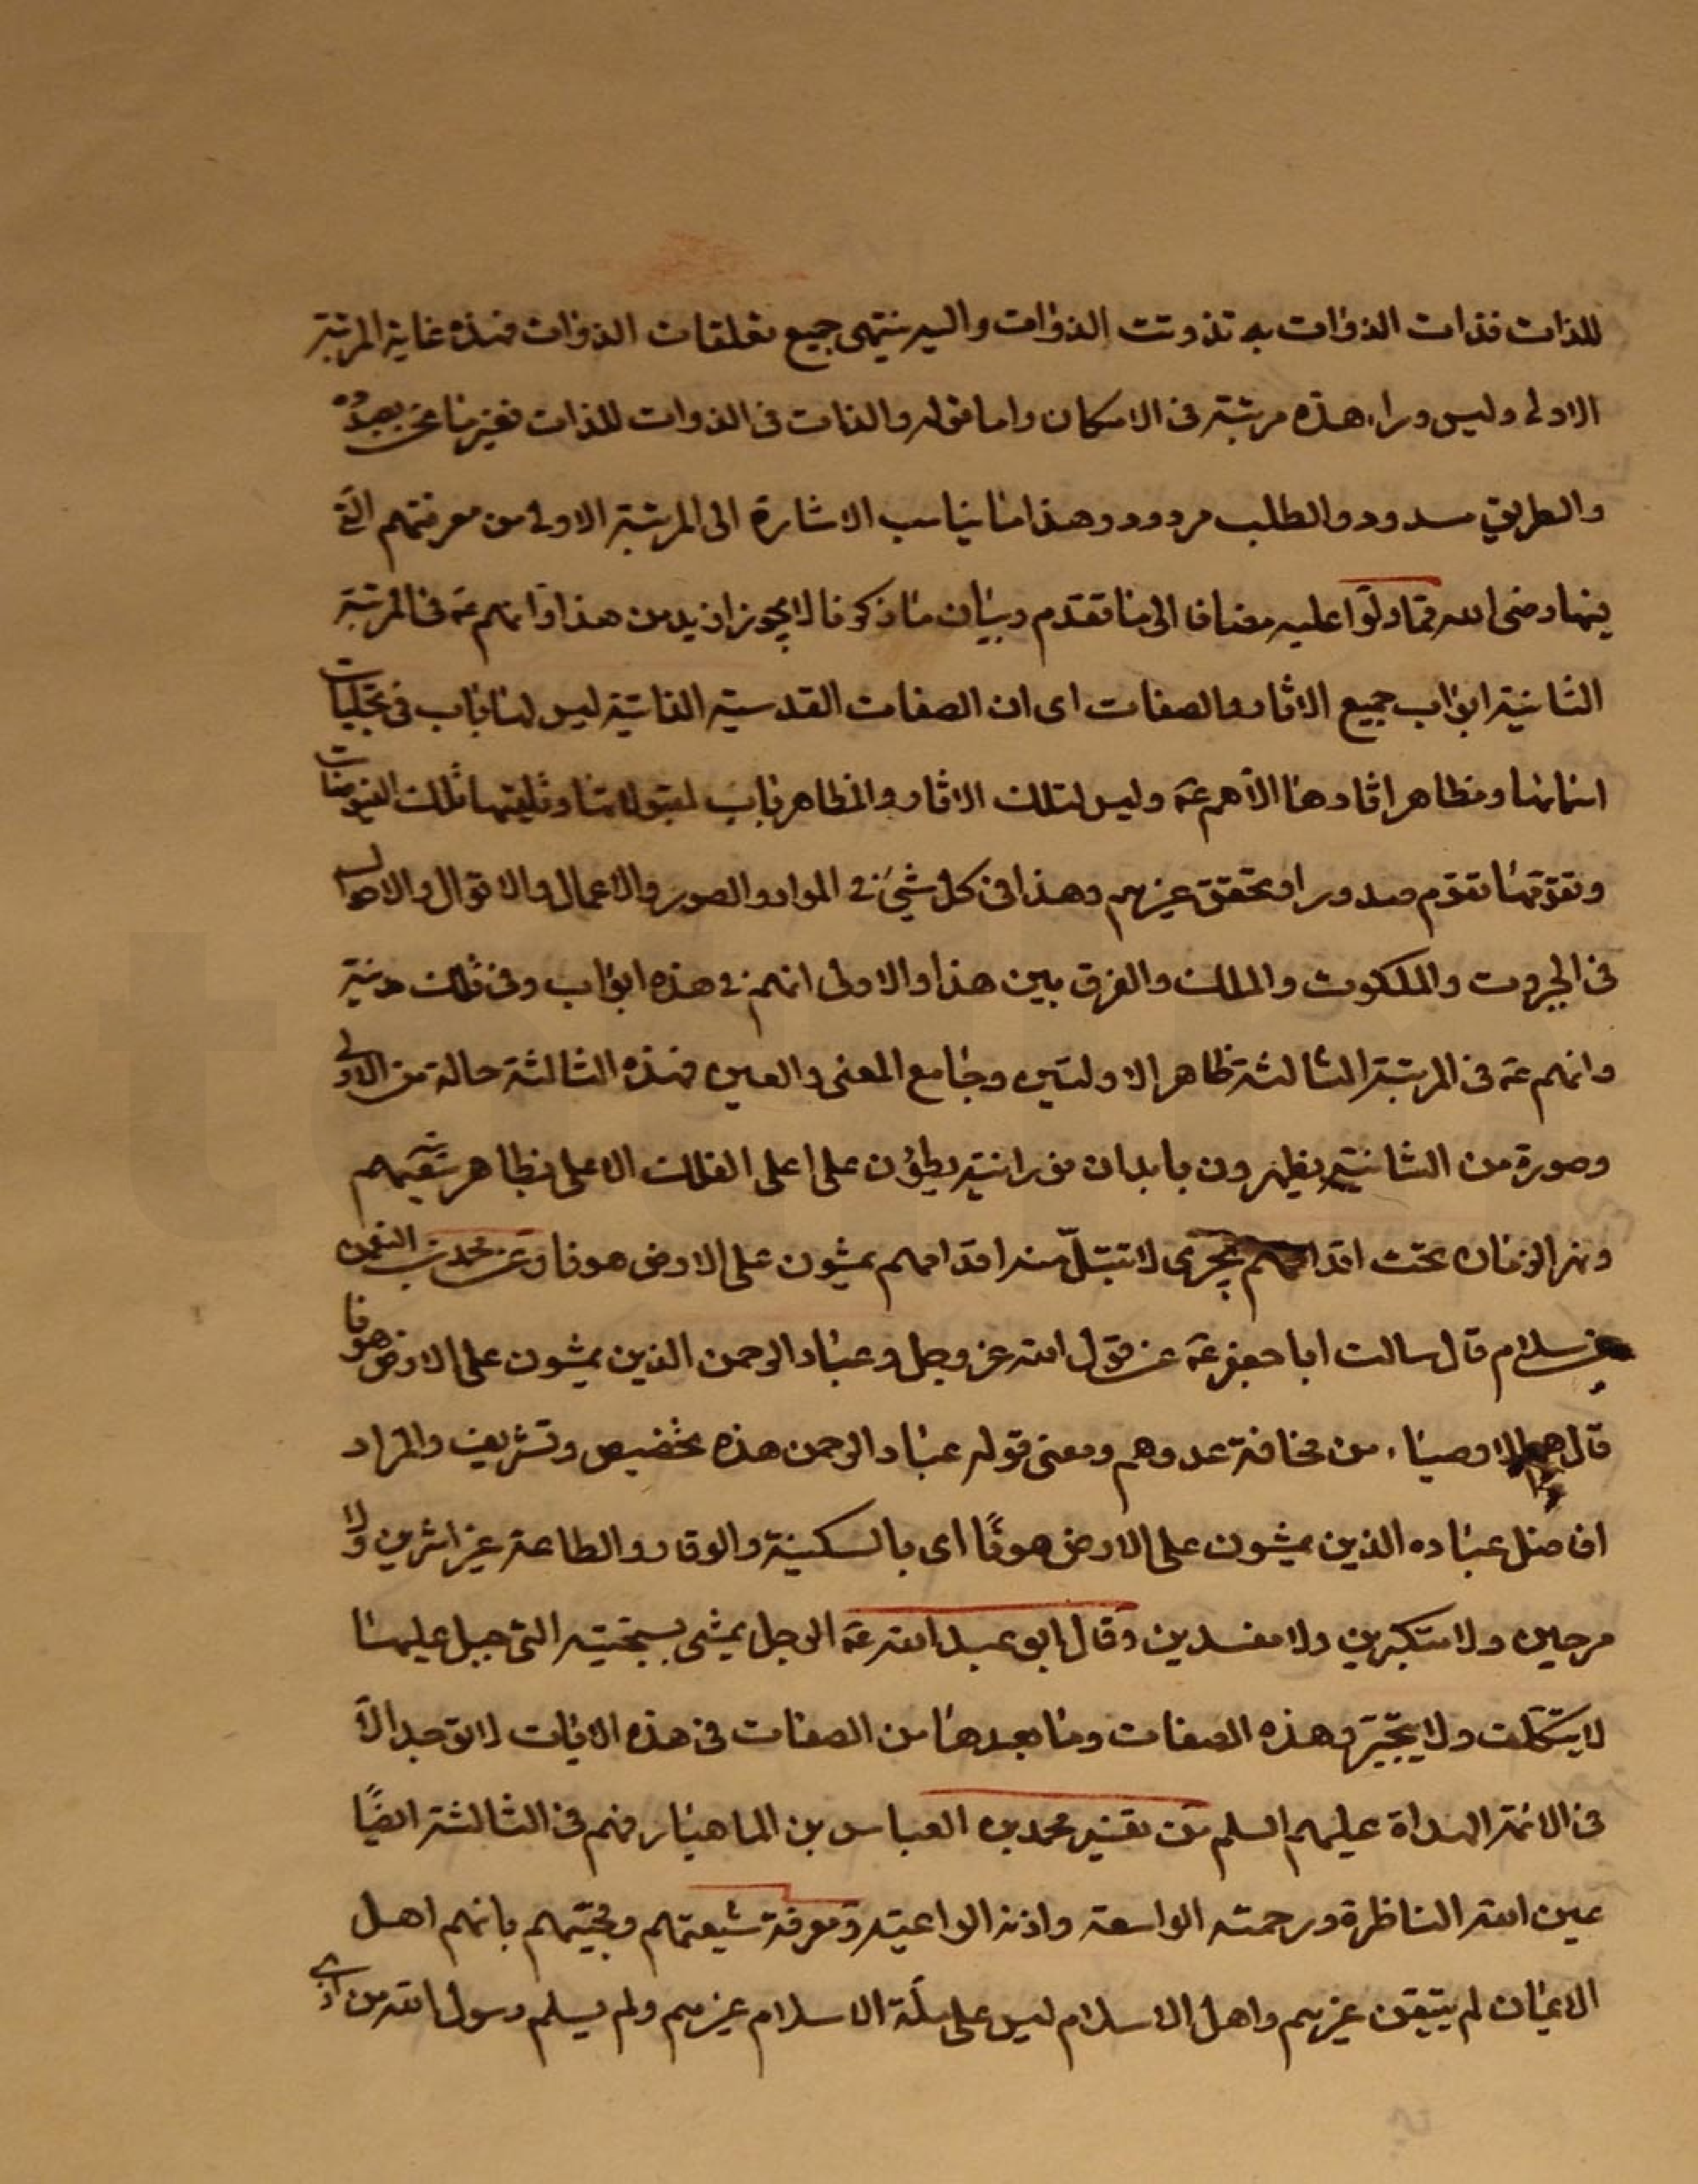 للذات فذات الذوات به تذوتت الذوات والیه ینتهی جمیع تعلقات الذوات فهذه غایة المرتبة
الاولی ولیس وراء هذه مرتبة فی الامکان واما قوله والذات فی الذوات للذات فغیر ما نحن بصدده
والطریق مسدود والطلب مردود وهذا ما یناسب الاشارة الی المرتبة الاولی من معرفتهم التی
ینهاد ضی الله مضافا الی ما تقدم وبیان ما ذکرنا لا یجوز ازید من هذا وانهم عه فی المرتبة
الثانیة ابواب جمیع الاثار والصفات ای ان الصفات القدسیة الذاتیة لیس لها باب فی تجلیات
اسمائها ومظاهر اثارها الا هم عه ولیس لتلک الاثار والمظاهر باب لقبولاتنا وتلقیها تلک الفیوضات
وتقومها تقوم صدور او تحقق غیرهم وهذا فی کل شیء فی المواد والصور والاعمال والاقوال والاحوال
فی الجبروت والملکوت والملک والفرق بین هذا والاولی انهم فی هذه ابواب وفی تلک مدینة
وانهم عه فی المرتبة الثالثة ظاهر الاولتین وجامع المعنی والعین فهذه الثالثة حالة من الاولی
وصورة من الثانیة یظهرون بابدان نورانیة یطؤن علی اعلی الفلک الاعلی بظاهر
ونهر الزمان تحت اقدامهم یجری لا تبتل منه اقدامهم یمشون علی الارض هونا وعن محمد بن النعمن
عن سلام قال سالت ابا جعفر عه عن قول الله عز وجل وعباد الرحمن الذین یمشون علی الارض هونا
قال هم الاوصیاء من مخافة عدوهم ومعنی قوله عباد الرحمن هذه تخصیص وتشریف والمراد
افاضل عباده الذین یمشون علی الارض هونًا ای بالسکینة والوقار والطاعة غیر اشرین ولا
مرحین ولا متکبرین ولا مفسدین وقال ابو عبد الله عه الرجل یمشی بسجیته التی جبل علیها
لا یتکلف ولا یتبختر وهذه الصفات وما بعدها من الصفات فی هذه الایات لا توجد الا
فی الائمة الهداة علیهم السلم من تفسیر محمد بن العباس بن الماهیار فهم فی الثالثة ایضًا
عین الله الناظرة ورحمته الواسعة واذنه الواعیة ومعرفة شیعتهم ومحبتهم بانهم اهل
الایمان لم یتیقن غیرهم واهل الاسلام لیس علی ملة الاسلام غیرهم ولم یسلم رسول الله من اذی